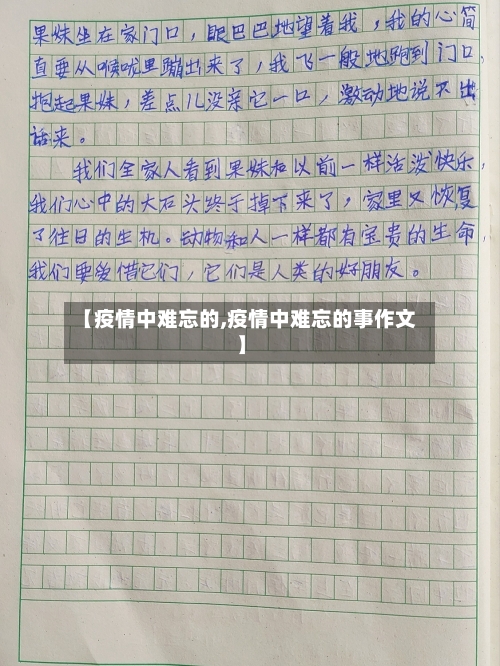 果妹坐在家门口，眼巴巴地望着我，我的心简
直要从喉咙里蹦出来了，我飞一般地跑到门口，
抱起果妹，差点儿没亲它一口，激动地说不出
话来。
我们全家人看到果妹和以前一样活泼快乐，
我们心中的大石头终于掉下来了，家里又恢复
了往日的生机。动物和人一样都有宝贵的生命，
我们要爱惜它们，它们是人类的好朋友。
【疫情中难忘的,疫情中难忘的事作文
】